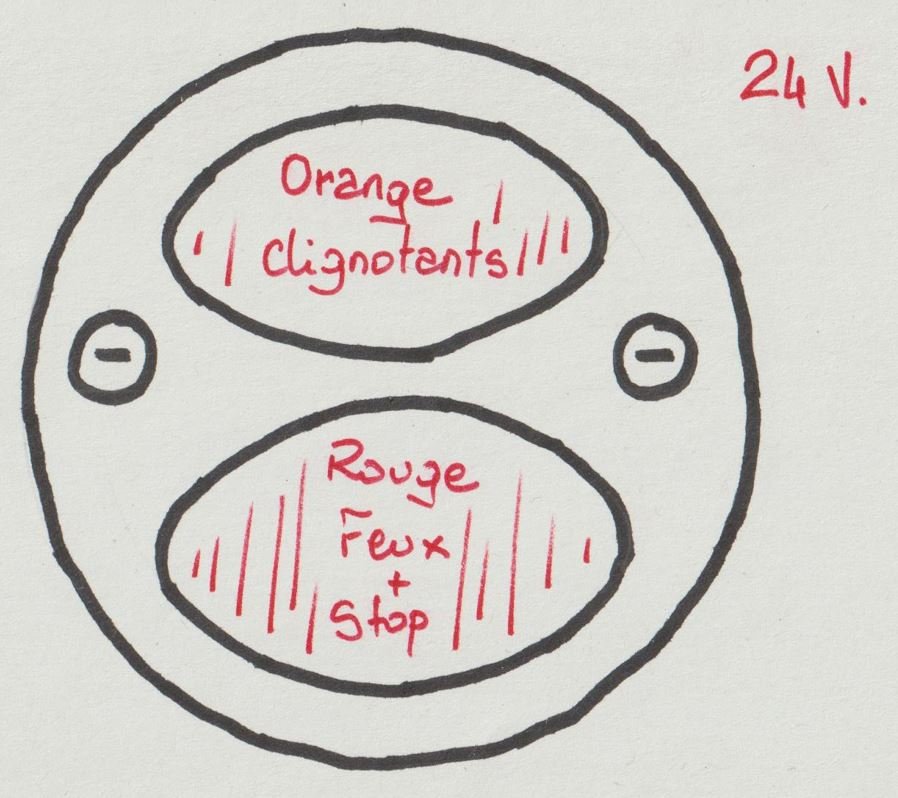 24 V.
Orange
Clignotants
-
-
Rouge
Feux
+
Stop